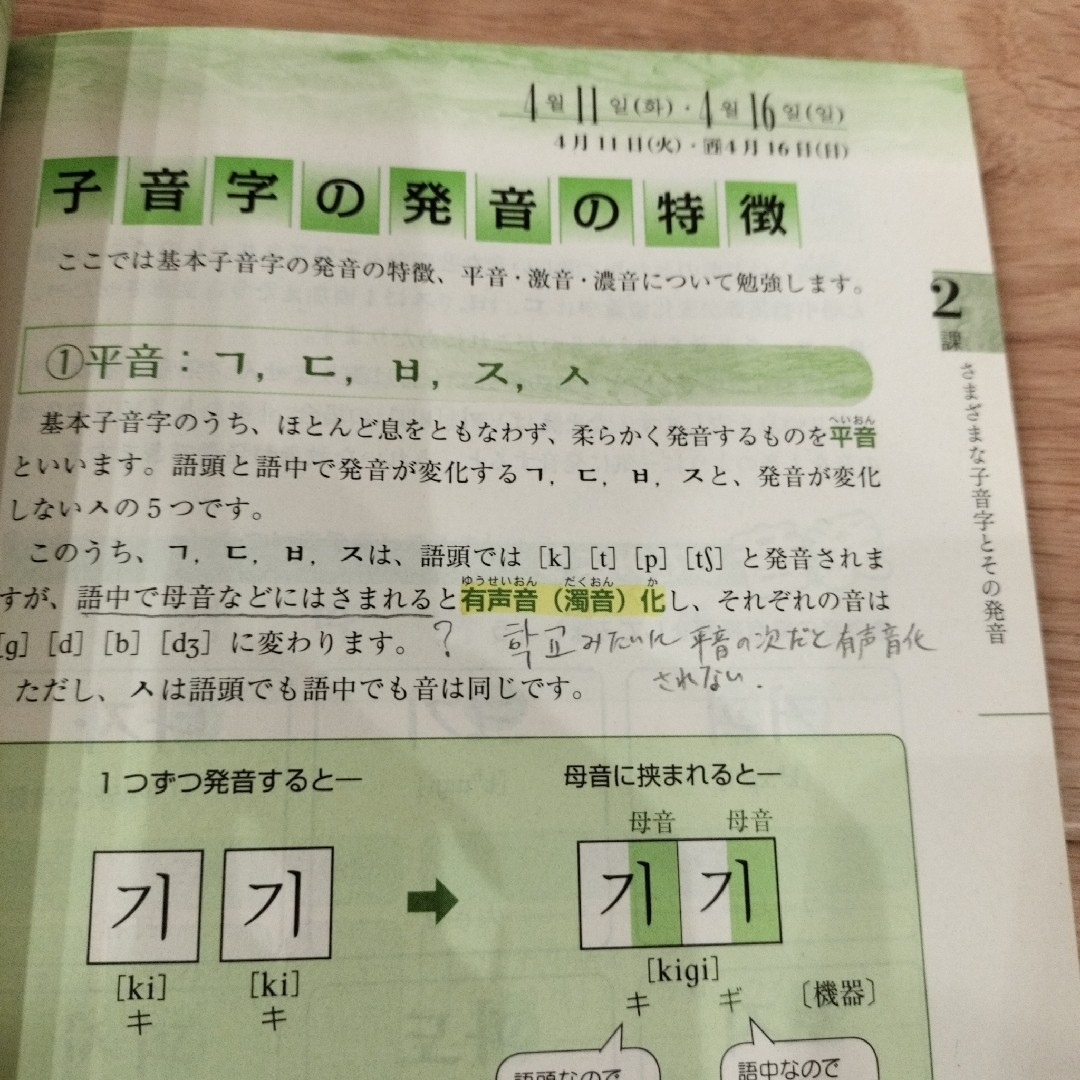 4월 11일(화)・4월 16일(일)
4月11日(火)・再4月16日(日)
子音字の発音の特徴
ここでは基本子音字の発音の特徴、平音・激音・濃音について勉強します。
①平音：ㄱ, ㄷ, ㅂ, ㅈ, ㅅ
へいおん
基本子音字のうち、ほとんど息をともなわず、柔らかく発音するものを平音
といいます。語頭と語中で発音が変化するㄱ, ㄷ, ㅂ, ㅈと、発音が変化
しないㅅの5つです。
このうち、ㄱ, ㄷ, ㅂ, ㅈは、語頭では [k] [t] [p] [tʃ] と発音されま
ゆうせいおん だくおん か
すが、語中で母音などにはさまれると有声音（濁音）化し、それぞれの音は
[g] [d] [b] [dʒ] に変わります。 ? 학교みたいに平音の次だと有声音化
されない.
ただし、ㅅは語頭でも語中でも音は同じです。
1つずつ発音すると―
母音に挟まれると―
母音 母音
기 기 기기
[ki] [ki] [kigi]
キ キ キ ギ 〔機器〕
語頭なので 語中なので
2
課
さまざまな子音字とその発音